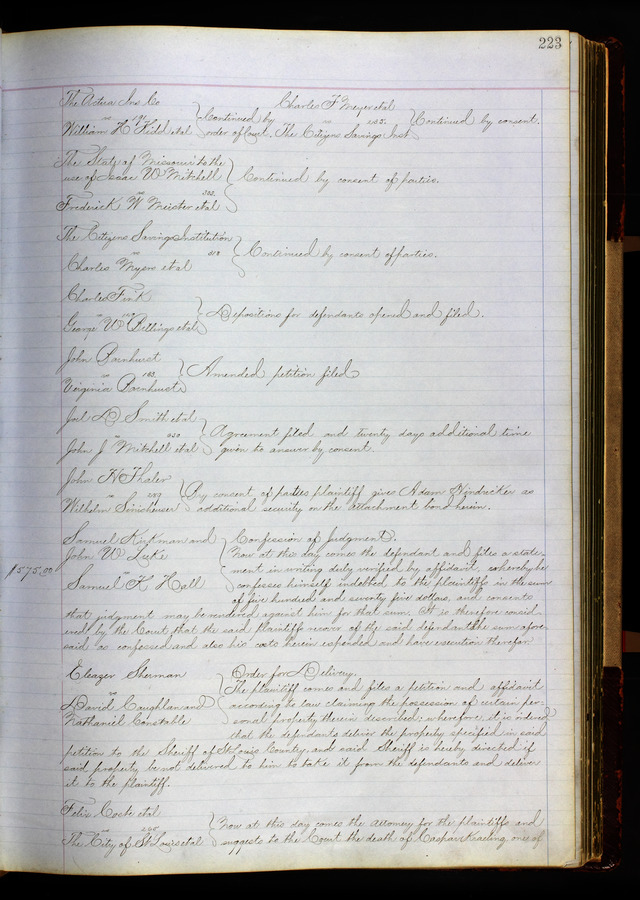 223
The Aetna Ins Co
vs 191
William H Field et al } Continued by order of Court.
Charles F Meyer et al
vs 155.
The Citizens Savings Inst } Continued by consent.
The State of Missouri to the
use of Isaac W Mitchell } Continued by consent of parties.
vs 202.
Frederick W Meister et al
The Citizens Savings Institution } Continued by consent of parties.
vs 218
Charles Myers et al
Charles Fink
vs
George W Billings et al } Depositions for defendants opened and filed.
John Barnhurst
vs 163.
Virginia Barnhurst } Amended petition filed
Joel D Smith et al
vs 250
John J Mitchell et al } Agreement filed and twenty days additional time
given to answer by consent.
John H Thaler
vs 289
Wilhelm } By consent of parties plaintiff gives Adam as
additional security on the attachment bond herein.
Samuel Kirkman and } Confession of Judgment.
John W Luke Now at this day comes the defendant and files a state-
$575.00 vs ment in writing duly verified by affidavit, whereby he
Samuel K Hall confesses himself indebted to the plaintiffs in the sum
of five hundred and seventy five dollars, and consents
that judgment may be rendered against him for that sum. It is therefore consid-
ered by the Court that the said plaintiffs recover of the said defendant the sum afore-
said as confessed and also his costs herein expended and have execution therefor.
Eleazer Sherman } Order for Delivery.
vs The plaintiff comes and files a petition and affidavit
David Coughlan and according to law claiming the possession of certain per-
Nathaniel Constable sonal property therein described; wherefore, it is ordered
that the defendants deliver the property specified in said
petition to the Sheriff of St Louis County, and said Sheriff is hereby directed if
said property be not delivered to him to take it from the defendants and deliver
it to the plaintiff.
Felix Coste et al } Now at this day comes the attorney for the plaintiffs and
vs 240
The City of St Louis et al suggests to the Court the death of Caspar one of